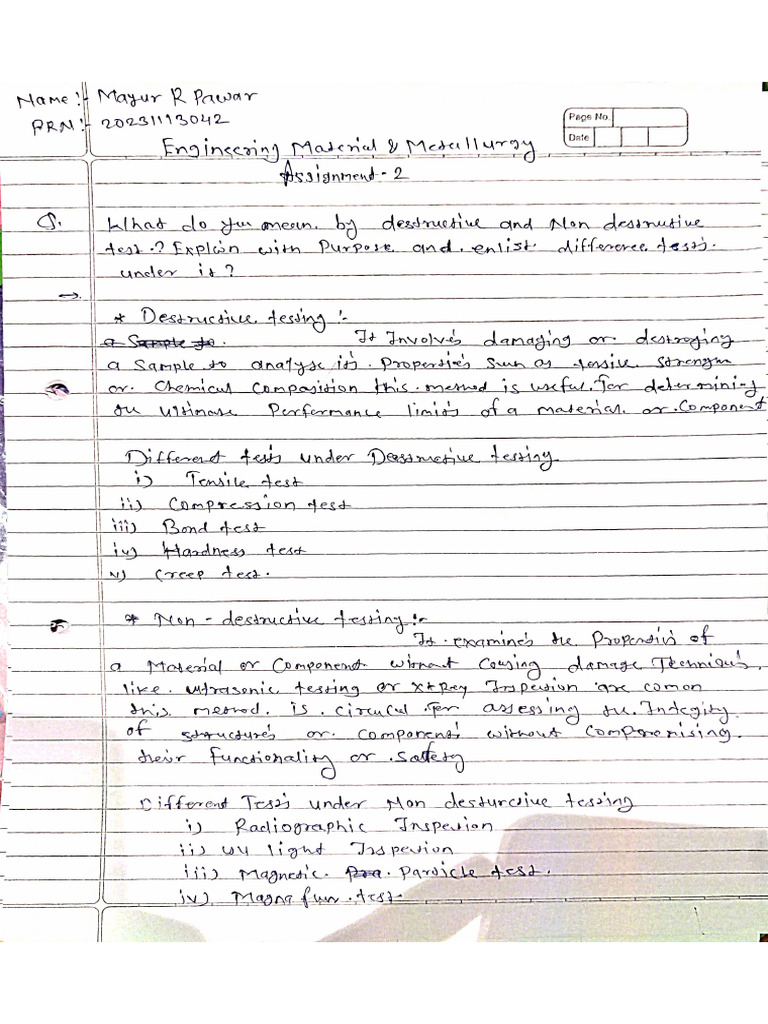 Name:- Mayur R Pawar
PRN:- 20231113042
Page No.
Date
Engineering Material & Metallurgy
Assignment-2
Q. What do you mean by destructive and Non destructive
test.? Explain with Purpose and enlist difference tests
under it?
→
* Destructive testing :-
a Sample to It Involves damaging or destroying
a sample to analyse its Properties such as tensile strength
or Chemical Composition this method is useful for determining
the ultimate Performance limits of a material or Component
Different tests under Destructive testing
i) Tensile test
ii) Compression test
iii) Bond test
iv) Hardness test
v) Creep test.
* Non-destructive testing:-
It examines the Properties of
a Material or Component without Cousing damage Techniques
like ultrasonic testing or X+Ray Inspection are comon
this method is circucal for assessing the Integity
of structures or components without Comporemising
their functionality or safety
Different Tests under Non desturctive testing
i) Radiographic Inspection
ii) UV light Inspection
iii) Magnetic Particle test.
iv) Magna fun test